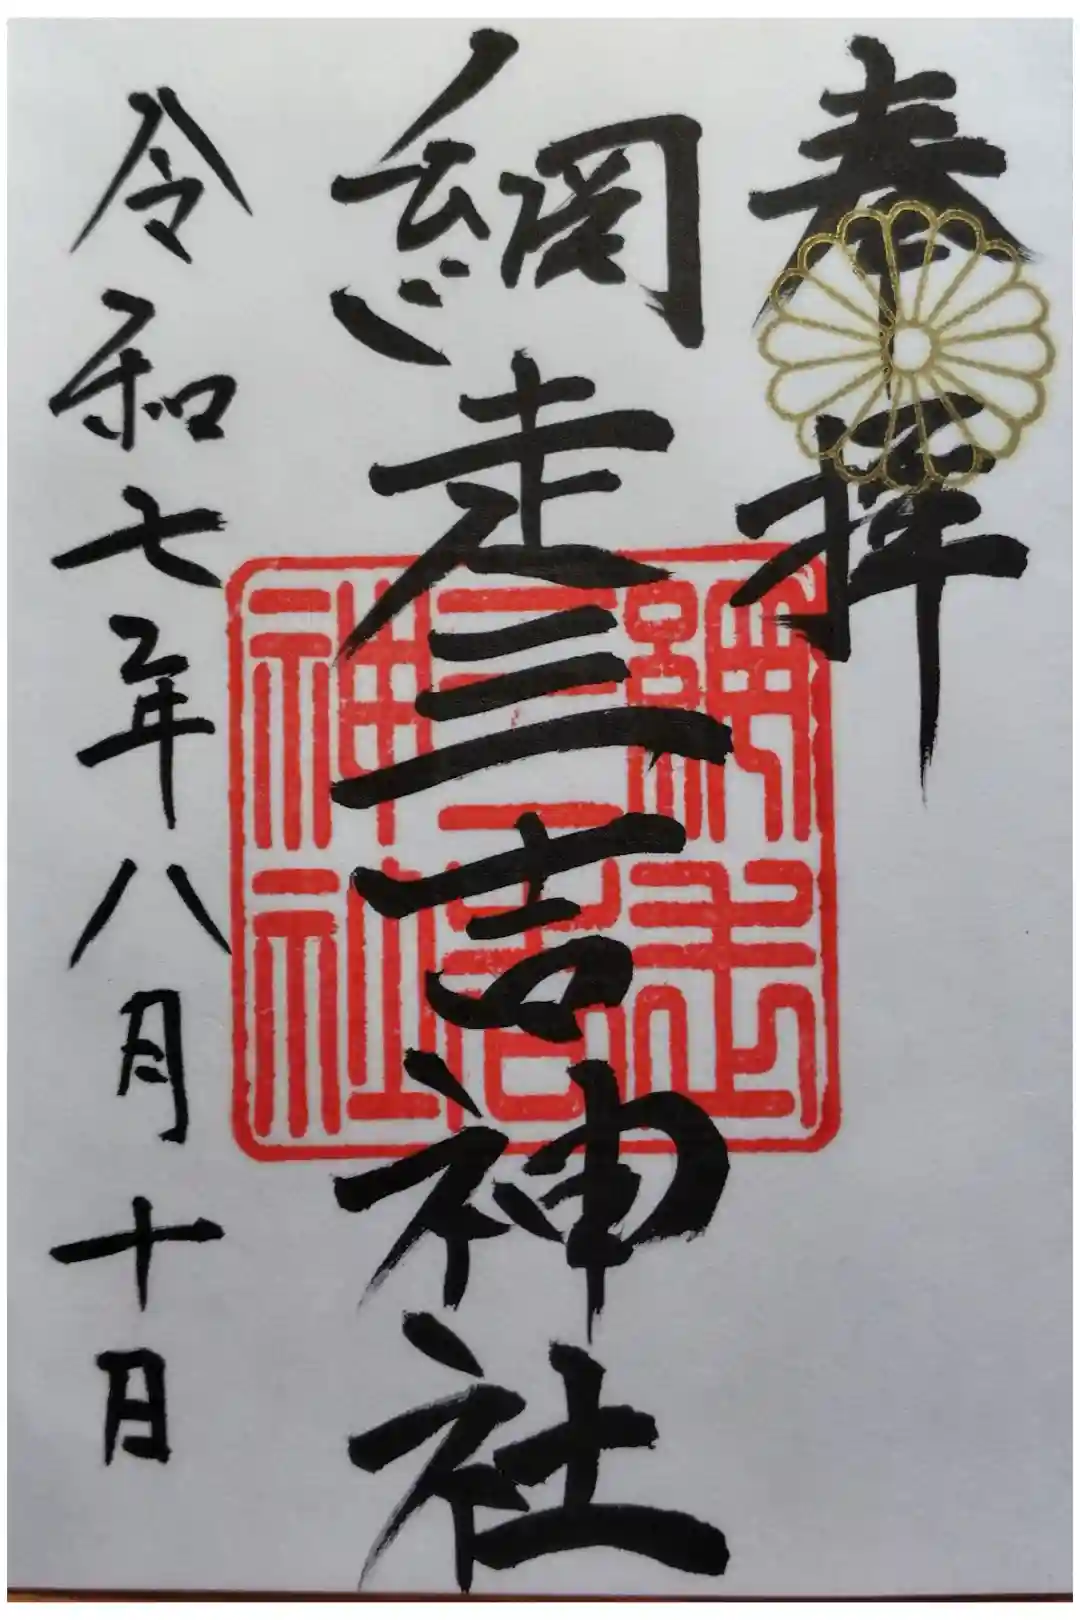 奉拝
網走三吉神社
網走
三吉
神社
令和七年八月十日